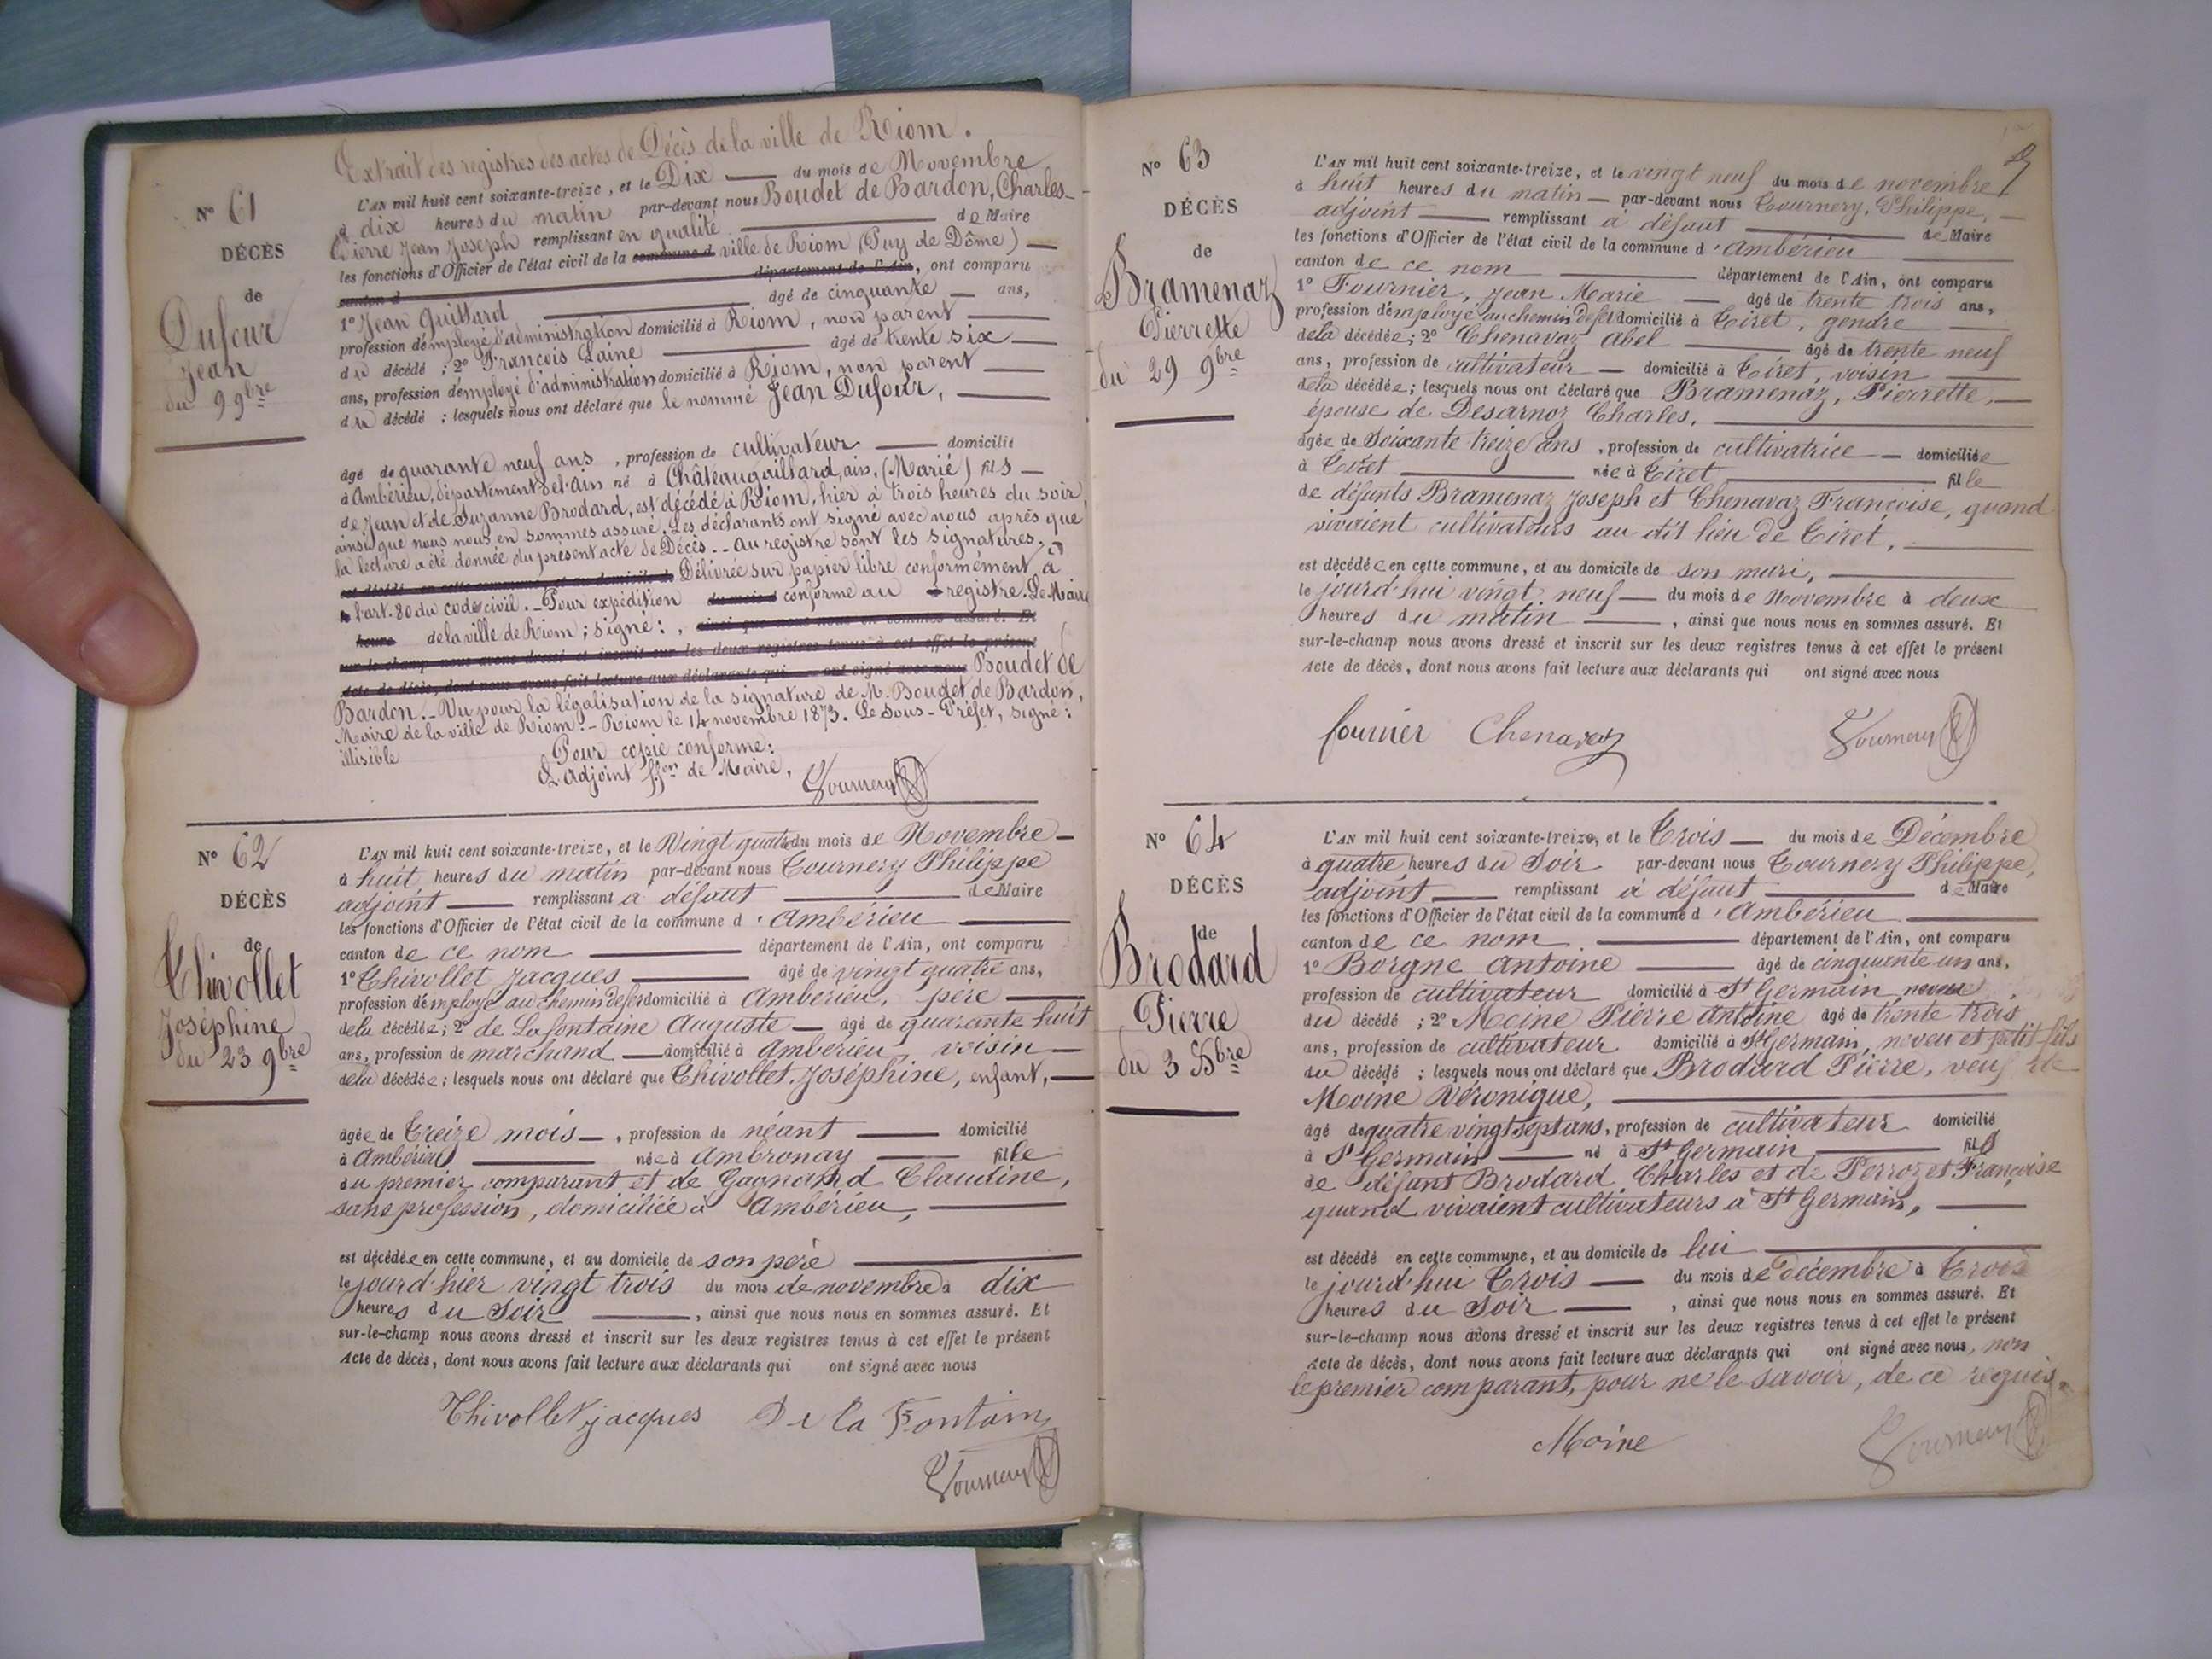 Extrait des registres des actes de Décès de la ville de Riom.
N° 61
DÉCÈS
de
Dufour
Jean
du 9 9bre
L'AN mil huit cent soixante-treize, et le Dix du mois de Novembre
à dix heures du matin par-devant nous Boudet de Bardon, Charles-
Pierre Jean Joseph remplissant en qualité de Maire
les fonctions d'Officier de l'état civil de la commune d ville de Riom (Puy de Dôme)
canton d département de l'Ain, ont comparu
1° Jean Guillard âgé de cinquante ans,
profession d'employé d'administration domicilié à Riom, non parent
du décédé ; 2° François Lainé âgé de trente six
ans, profession d'employé d'administration domicilié à Riom, non parent
du décédé ; lesquels nous ont déclaré que le nommé Jean Dufour,
âgé de quarante neuf ans, profession de cultivateur domicilié
à Ambérieu, département de l'Ain né à Châteaugaillard, ain, (Marié) fils
de Jean et de Suzanne Brodard, est décédé à Riom, hier à trois heures du soir
ainsi que nous nous en sommes assuré. Les déclarants ont signé avec nous après que
la lecture a été donnée du présent acte de Décès. -- Au registre sont les signatures.
est décédé en cette commune, et au domicile de Délivrée sur papier libre conformément à
l'art. 80 du code civil. - Pour expédition du mois d conforme au registre. Le Maire
heure de la ville de Riom ; signé : , ainsi que nous nous en sommes assuré. Et
sur-le-champ nous avons dressé et inscrit sur les deux registres tenus à cet effet le présent
Acte de décès, dont nous avons fait lecture aux déclarants qui ont signé avec nous Boudet de
Bardon. - Vu pour la légalisation de la signature de M. Boudet de Bardon,
Maire de la ville de Riom. - Riom le 14 novembre 1873. Le Sous-Préfet, signé :
illisible
Pour copie conforme :
L'adjoint ffon de Maire,
Tournery
N° 62
DÉCÈS
de
Thivollet
Joséphine
du 23 9bre
L'AN mil huit cent soixante-treize, et le Vingt quatre du mois de Novembre
à huit heures du matin par-devant nous Tournery Philippe
adjoint remplissant à défaut de Maire
les fonctions d'Officier de l'état civil de la commune d'Ambérieu
canton de ce nom département de l'Ain, ont comparu
1° Thivollet Jacques âgé de vingt quatre ans,
profession d'employé au chemin de fer domicilié à Ambérieu, père
de la décédée ; 2° de Lafontaine Auguste âgé de quarante huit
ans, profession de marchand domicilié à Ambérieu, voisin
de la décédée ; lesquels nous ont déclaré que Thivollet, Joséphine, enfant,
âgée de Treize mois, profession de néant domicilié
à Ambérieu née à Ambronay fille
du premier comparant et de Gagnard Claudine,
sans profession, domiciliée à Ambérieu,
est décédée en cette commune, et au domicile de son père
le jourd'hier vingt trois du mois de novembre à dix
heures du Soir , ainsi que nous nous en sommes assuré. Et
sur-le-champ nous avons dressé et inscrit sur les deux registres tenus à cet effet le présent
Acte de décès, dont nous avons fait lecture aux déclarants qui ont signé avec nous
Thivollet jacques De la Fontaine
Tournery
N° 63
DÉCÈS
de
Bramenaz
Pierrette
du 29 9bre
L'AN mil huit cent soixante-treize, et le vingt neuf du mois de novembre
à huit heures du matin par-devant nous Tournery, Philippe,
adjoint remplissant à défaut de Maire
les fonctions d'Officier de l'état civil de la commune d'Ambérieu
canton de ce nom département de l'Ain, ont comparu
1° Fournier, Jean Marie âgé de trente trois ans,
profession d'employé au chemin de fer domicilié à Tiret, gendre
de la décédée ; 2° Chenavaz Abel âgé de trente neuf
ans, profession de cultivateur domicilié à Tiret, voisin
de la décédée ; lesquels nous ont déclaré que Bramenaz, Pierrette,
épouse de Desarnoz Charles,
âgée de Soixante treize ans, profession de cultivatrice domiciliée
à Tiret née à Tiret fille
de défunts Bramenaz Joseph et Chenavaz Françoise, quand
vivaient cultivateurs au dit lieu de Tiret,
est décédée en cette commune, et au domicile de son mari,
le jourd'hui vingt neuf du mois de Novembre à deux
heures du matin , ainsi que nous nous en sommes assuré. Et
sur-le-champ nous avons dressé et inscrit sur les deux registres tenus à cet effet le présent
Acte de décès, dont nous avons fait lecture aux déclarants qui ont signé avec nous
fournier Chenavaz Tournery
N° 64
DÉCÈS
de
Brodard
Pierre
du 3 Xbre
L'AN mil huit cent soixante-treize, et le Trois du mois de Décembre
à quatre heures du Soir par-devant nous Tournery Philippe,
adjoint remplissant à défaut de Maire
les fonctions d'Officier de l'état civil de la commune d'Ambérieu
canton de ce nom département de l'Ain, ont comparu
1° Borgne Antoine âgé de cinquante un ans,
profession de cultivateur domicilié à St Germain neveu
du décédé ; 2° Moine Pierre Antoine âgé de trente trois
ans, profession de cultivateur domicilié à St Germain, neveu et petit-fils
du décédé ; lesquels nous ont déclaré que Brodard Pierre, veuf de
Moine Véronique,
âgé de quatre vingt sept ans, profession de cultivateur domicilié
à St Germain né à St Germain fils
de défunt Brodard Charles et de Perrozet Françoise
quand vivaient cultivateurs à St Germain,
est décédé en cette commune, et au domicile de lui
le jourd'hui Trois du mois de décembre à Trois
heures du Soir , ainsi que nous nous en sommes assuré. Et
sur-le-champ nous avons dressé et inscrit sur les deux registres tenus à cet effet le présent
Acte de décès, dont nous avons fait lecture aux déclarants qui ont signé avec nous, non
le premier comparant, pour ne le savoir, de ce requis.
Moine Tournery